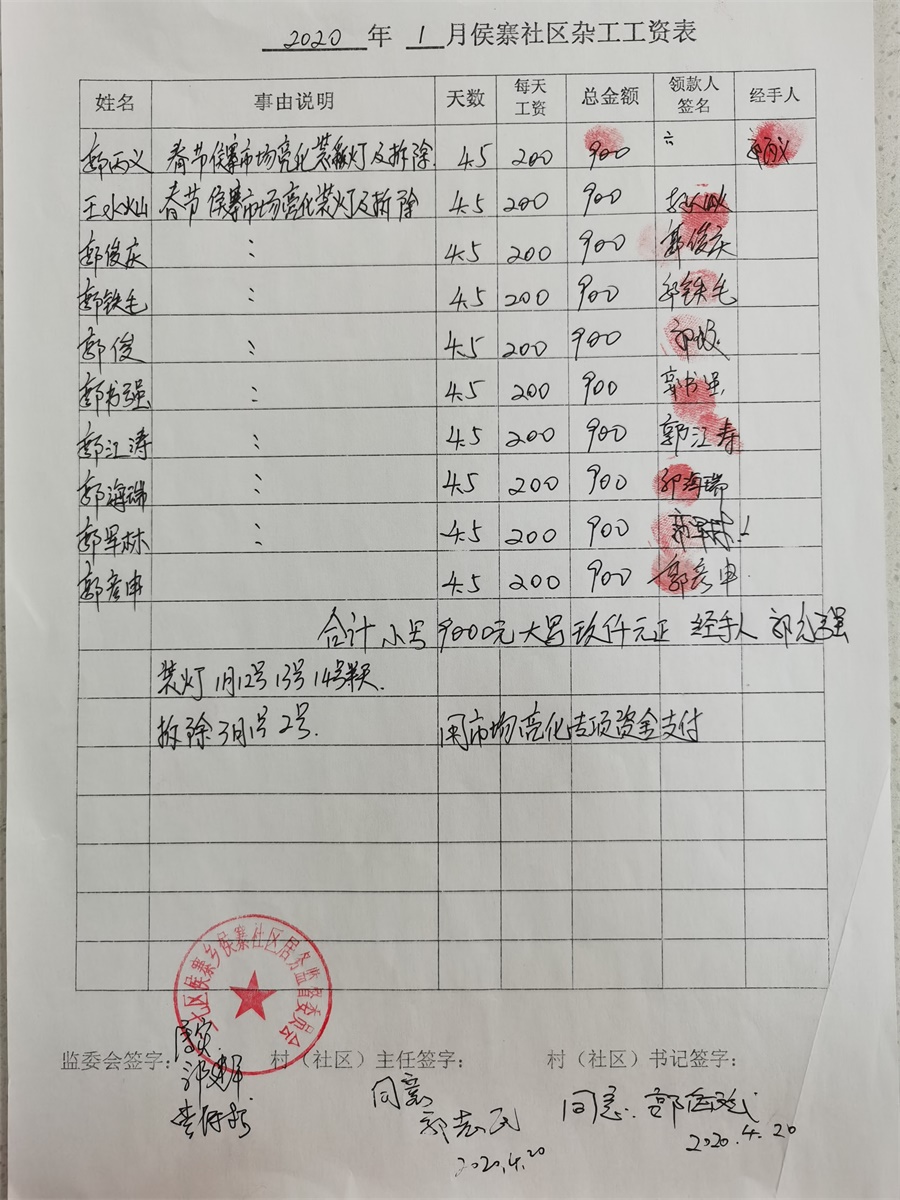 2020 年 1 月侯寨社区杂工工资表
姓名 事由说明 天数 每天工资 总金额 领款人签名 经手人
郭丙义 春节侯寨市场亮化装灯及拆除 4.5 200 900 郭丙义
王水山 春节侯寨市场亮化装灯及拆除 4.5 200 900
郭俊庆 〃 4.5 200 900 郭俊庆
郭铁毛 〃 4.5 200 900 郭铁毛
郭俊 〃 4.5 200 900 郭俊
郭书强 〃 4.5 200 900 郭书强
郭江涛 〃 4.5 200 900 郭江涛
郭海瑞 〃 4.5 200 900 郭海瑞
郭军林 〃 4.5 200 900 郭军林
郭彦申 4.5 200 900 郭彦申
合计 小写 9000元 大写 玖仟元正 经手人
装灯 1月12号 13号 14号半天.
拆除 3月1号 2号. 用市场亮化专项资金支付
七区侯寨乡侯寨社区居务监督委员会
监委会签字: 村（社区）主任签字: 村（社区）书记签字:
同意 郭志民 2020.4.20
同意. 2020.4.20